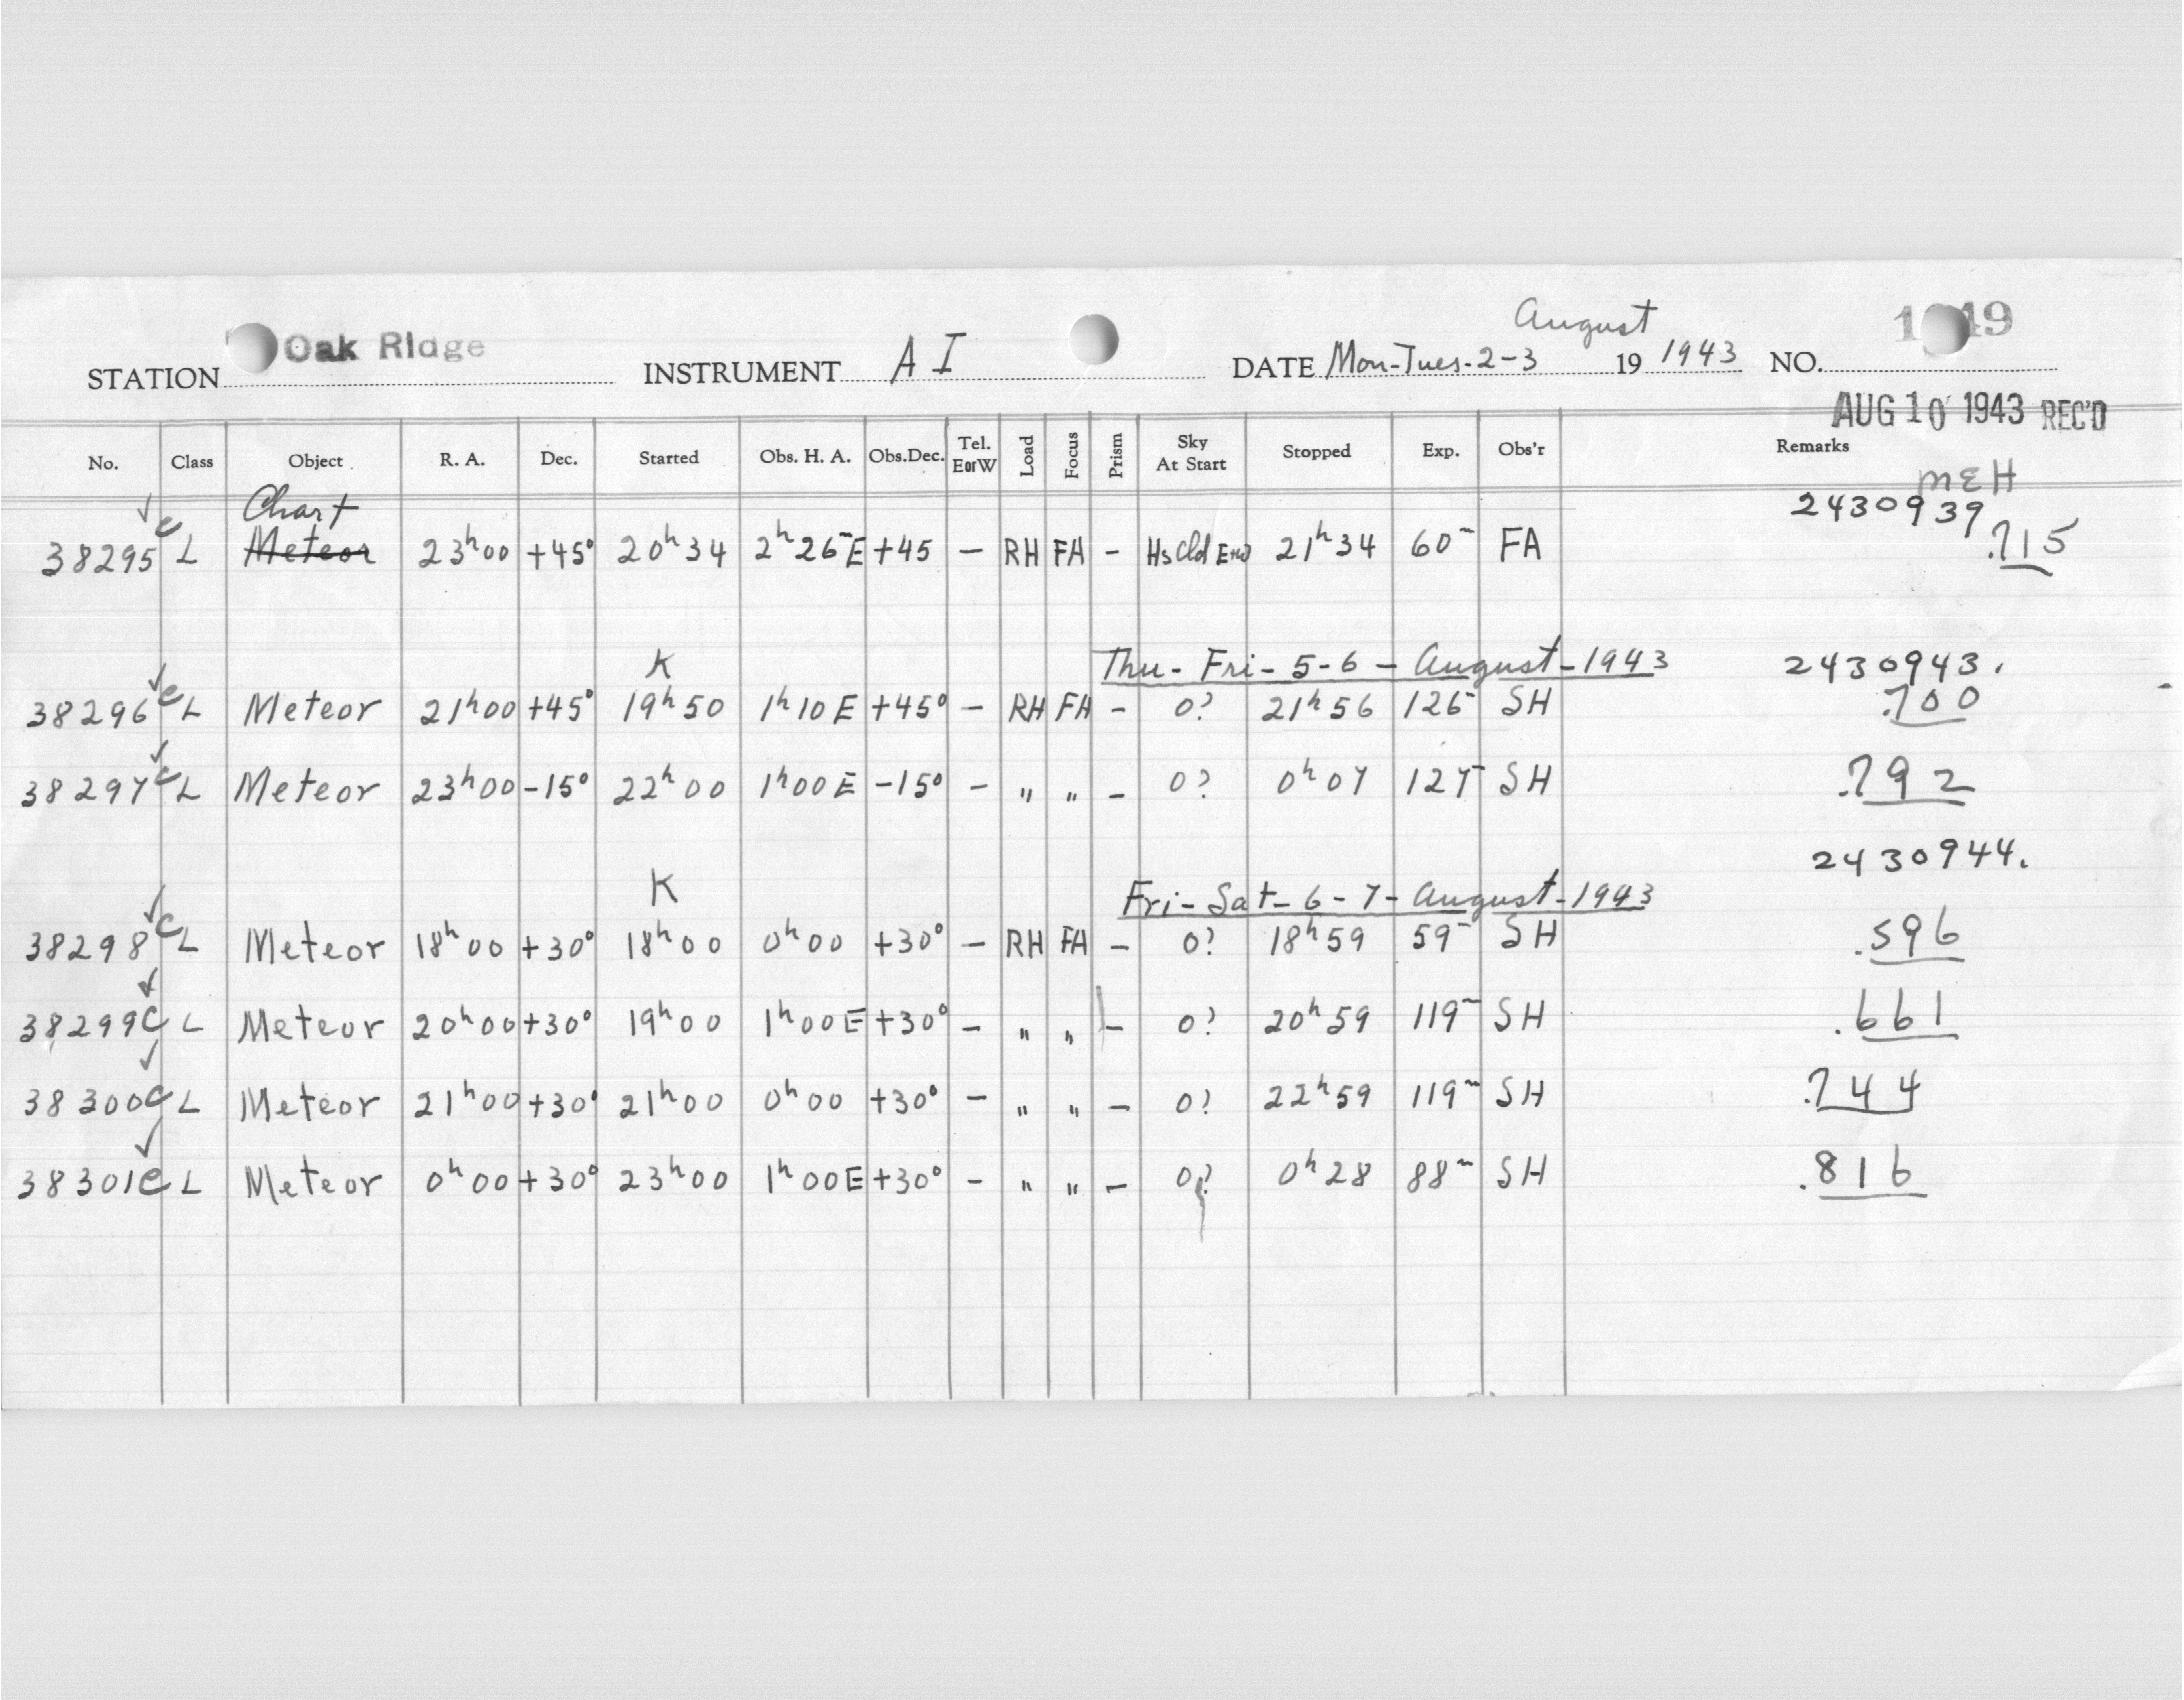 August
STATION Oak Ridge INSTRUMENT A I DATE Mon-Tues-2-3 19 1943 NO.
AUG 10 1943 REC'D
No. Class Object R. A. Dec. Started Obs. H. A. Obs.Dec. Tel. E or W Load Focus Prism Sky At Start Stopped Exp. Obs'r Remarks
MEH
Chart 2430939
38295 c L Meteor 23h00 +45° 20h34 2h26E +45 – RH FA – Hs Cld E+W 21h34 60m FA .715
K Thu-Fri-5-6-August-1943 2430943.
38296 c L Meteor 21h00 +45° 19h50 1h10E +45° – RH FA – 0? 21h56 126m SH .700
38297 c L Meteor 23h00 -15° 22h00 1h00E -15° – " " – 0? 0h07 127m SH .792
2430944.
K Fri-Sat-6-7-August-1943
38298 c L Meteor 18h00 +30° 18h00 0h00 +30° – RH FA – 0? 18h59 59m SH .596
38299 c L Meteor 20h00 +30° 19h00 1h00E +30° – " " – 0? 20h59 119m SH .661
38300 c L Meteor 21h00 +30° 21h00 0h00 +30° – " " – 0? 22h59 119m SH .744
38301 c L Meteor 0h00 +30° 23h00 1h00E +30° – " " – 0? 0h28 88m SH .816